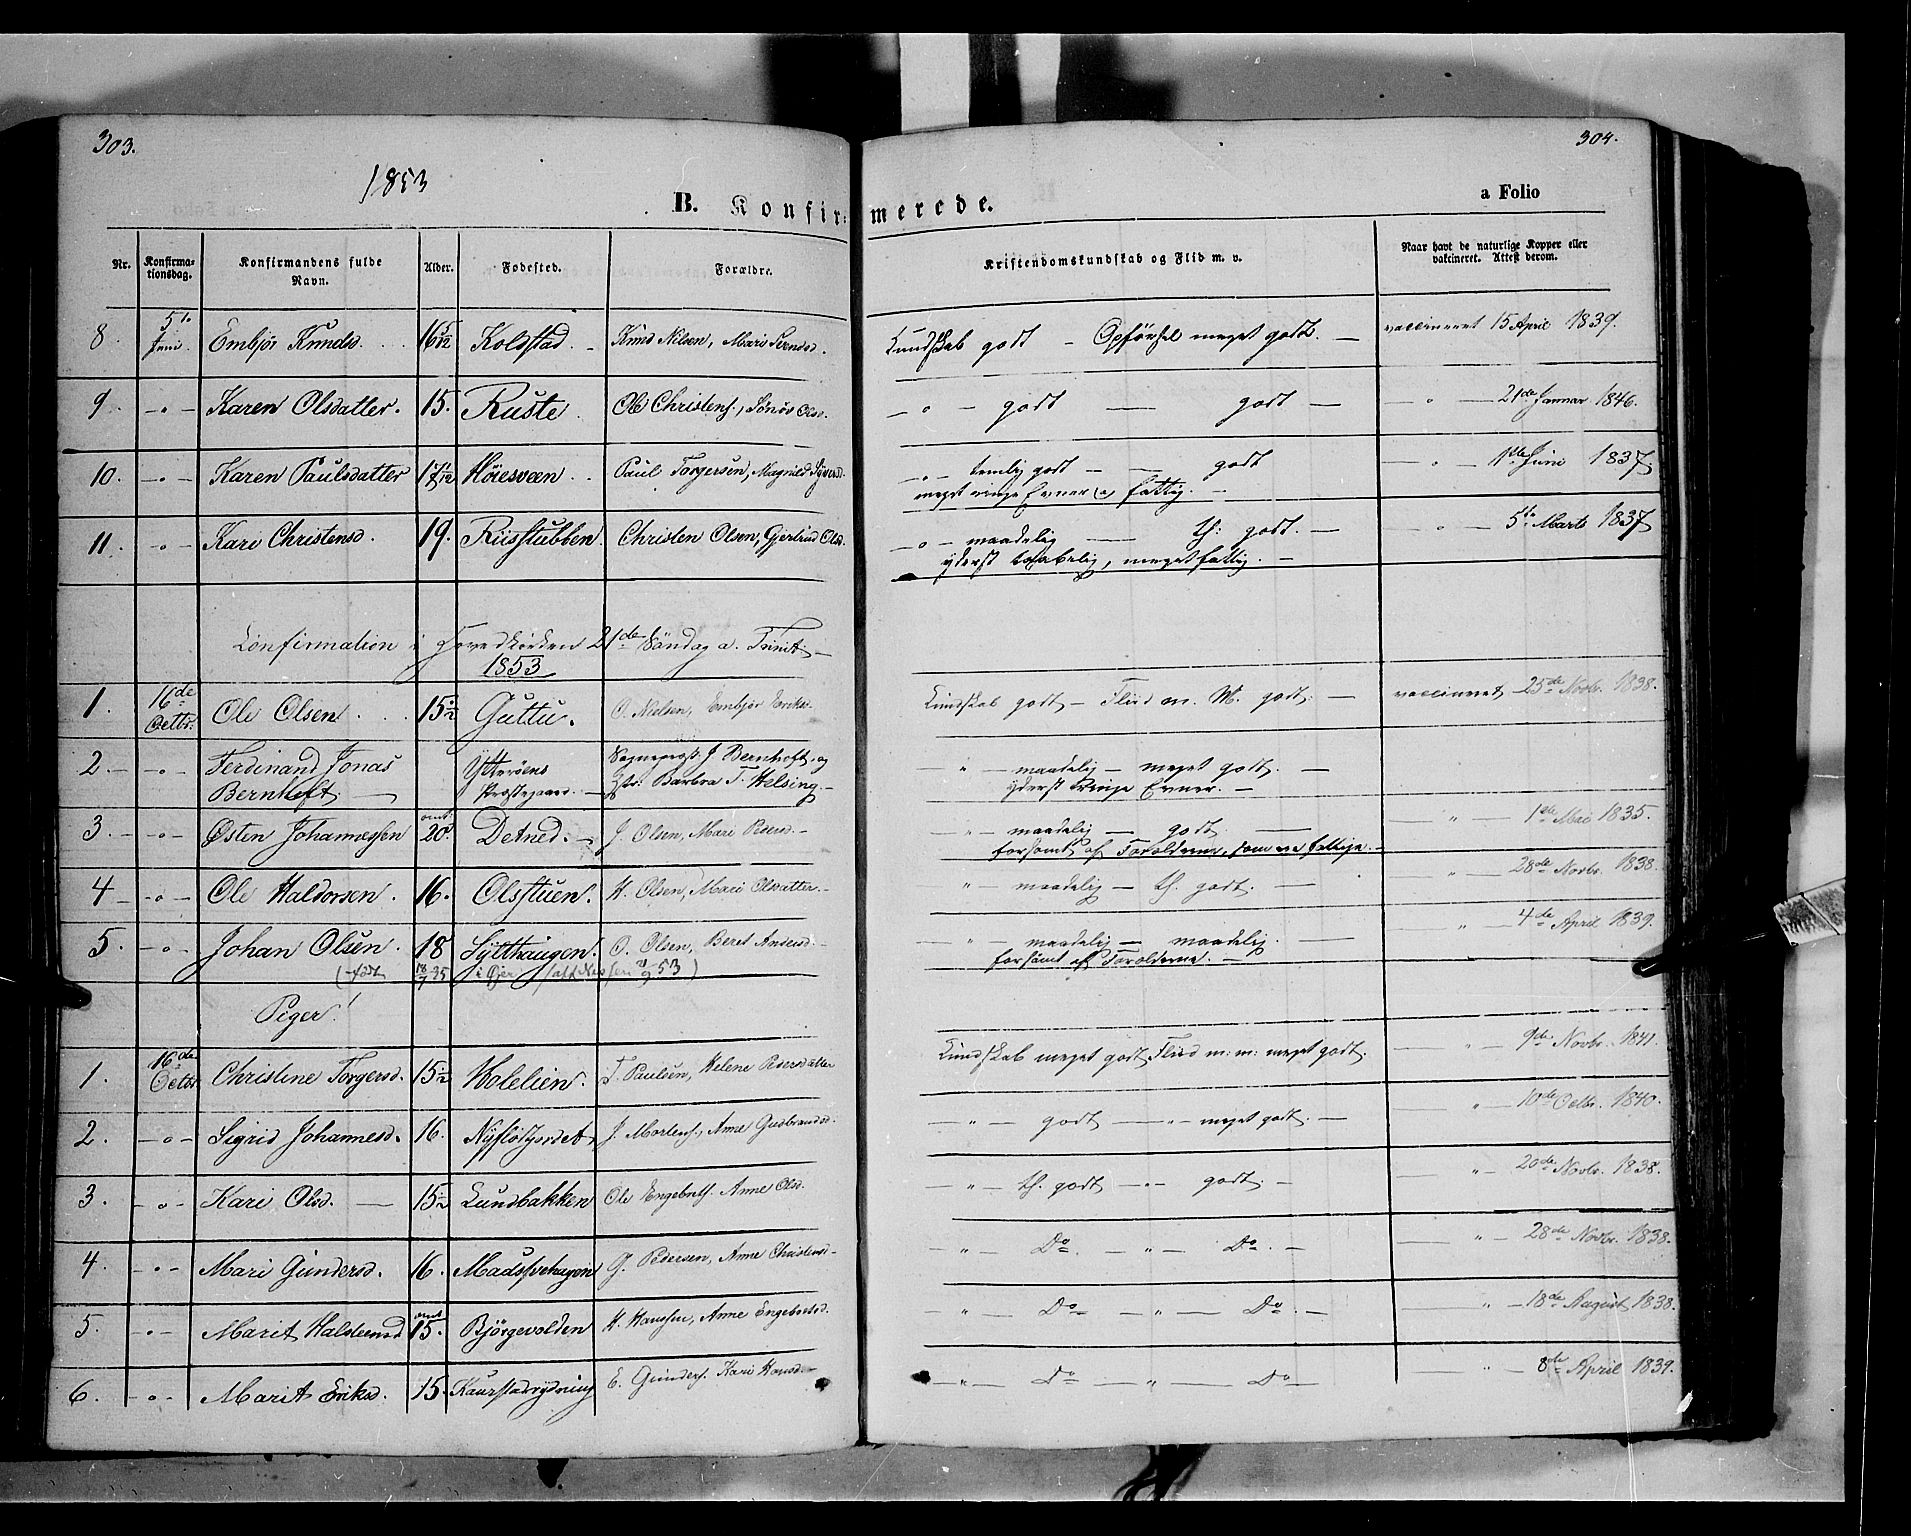 303.
304.
1853
B. Konfirmerede.
a Folio
Nr. Konfirmationsdag. Konfirmandens fulde Navn. Alder. Fødested. Forældre. Kristendomskundskab og Flid m. v. Naar havt de naturlige Kopper eller vakcineret. Attest derom.
8. 5te Juni. Embjør Knudsd. 16 5/12 Kolstad. Knud Nilsen, Mari Kundskab godt - Opførsel meget godt. vaccineret 15 April 1839.
9. -o- Karen Olsdatter. 15. Ruste. Ole Christens., Olsd. -o- godt godt -"- 21de Januar 1846.
10. -o- Karen Paulsdatter 17 Høiesveen. Paul Torgersen, Magnild temlig godt - godt -"- Juni 1837
meget ringe Evner og fattig.
11. -o- Kari Christensd. 19. Riisstubben. Christen Olsen, Gjertrud Olsd. -o- maadelig - th: godt. -"- 5te Marts 1837
yderst tabelig, meget fattig.
Confirmation i Hovedkirken 21de Søndag a. Trinit.
1853
1. 16de Octbr. Ole Olsen 15 1/2 Guttu. O. Nielsen, Embjør Eriksd. Kundskab godt - Fliid m. M. godt. vaccineret 25de Novbr. 1838.
2 -o- Ferdinand Jonas Bernhoft. Ytterøens Præstegaard. Sogneprest J. Bernhoft og Barbra T. Helsing -"- maadelig - meget godt.
yderst ringe Evner.
3 -o- Østen Johannessen omt. 20. Detned. J. Olsen, Mari Pedersd. -"- maadelig - godt -"- 1ste Mai 1835.
forsømt af Forældrene, som ere fattige.
4 -o- Ole Haldorsen. 16. Olsstuen. H. Olsen, Mari Olsdatter. -"- maadelig - th. godt. -"- 28de Novbr. 1838.
5. -o- Johan Olsen. 18 Sylthaugen. O. Olsen, Beret Andersd. -"- maadelig - maadelig. -"- 4de April 1839.
(født 18/7 35 i Øier 53) forsømt af Forældrene.
Piger!
1. 16de Octbr Christine Torgersd. 15 1/2 Holelien. T. Paulsen, Helene Pedersdatter Kundskab meget godt Fliid m: m: meget godt. -"- 9de Novbr. 1841.
2. -o- Sigrid Johannesd. 16. Nyfløtjordet J. Mortens., Anne Gudbrandsd. -"- godt -"- meget godt. -"- 10de Octbr. 1840.
3. -o- Kari Olsd. 15 1/2 Lundbakken Ole Engebrets. Anne Olsd. -"- th. godt -"- godt. -"- 20de Novbr. 1838.
4. -o- Mari Gundersd. 16. G. Pedersen, Anne Christensd. -"- Do -"- Do. -"- 28de Novbr. 1838.
5. -o- Marit Halsteensd omt 15. Bjørgevolden H. Hanssen, Anne Engebretsd. -"- Do -"- Do. -"- 18de August 1838.
6. -o- Marit Eriksd. 15. Kaurstadrydning E. Gunders. Kari Hansd. -"- Do -"- Do -"- 8de April 1839.